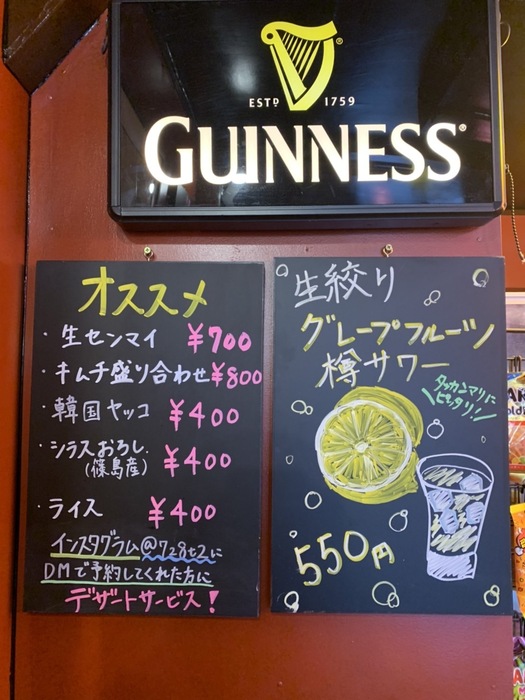 ESTD 1759
GUINNESS
オススメ
・生センマイ ¥700
・キムチ盛り合わせ ¥800
・韓国ヤッコ ¥400
・シラスおろし ¥400
(篠島産)
・ライス ¥400
インスタグラム@728t2に
DMで予約してくれた方に
デザートサービス!
生絞り
グレープフルーツ
樽サワー
タッカンマリに
ピッタリ!
550円